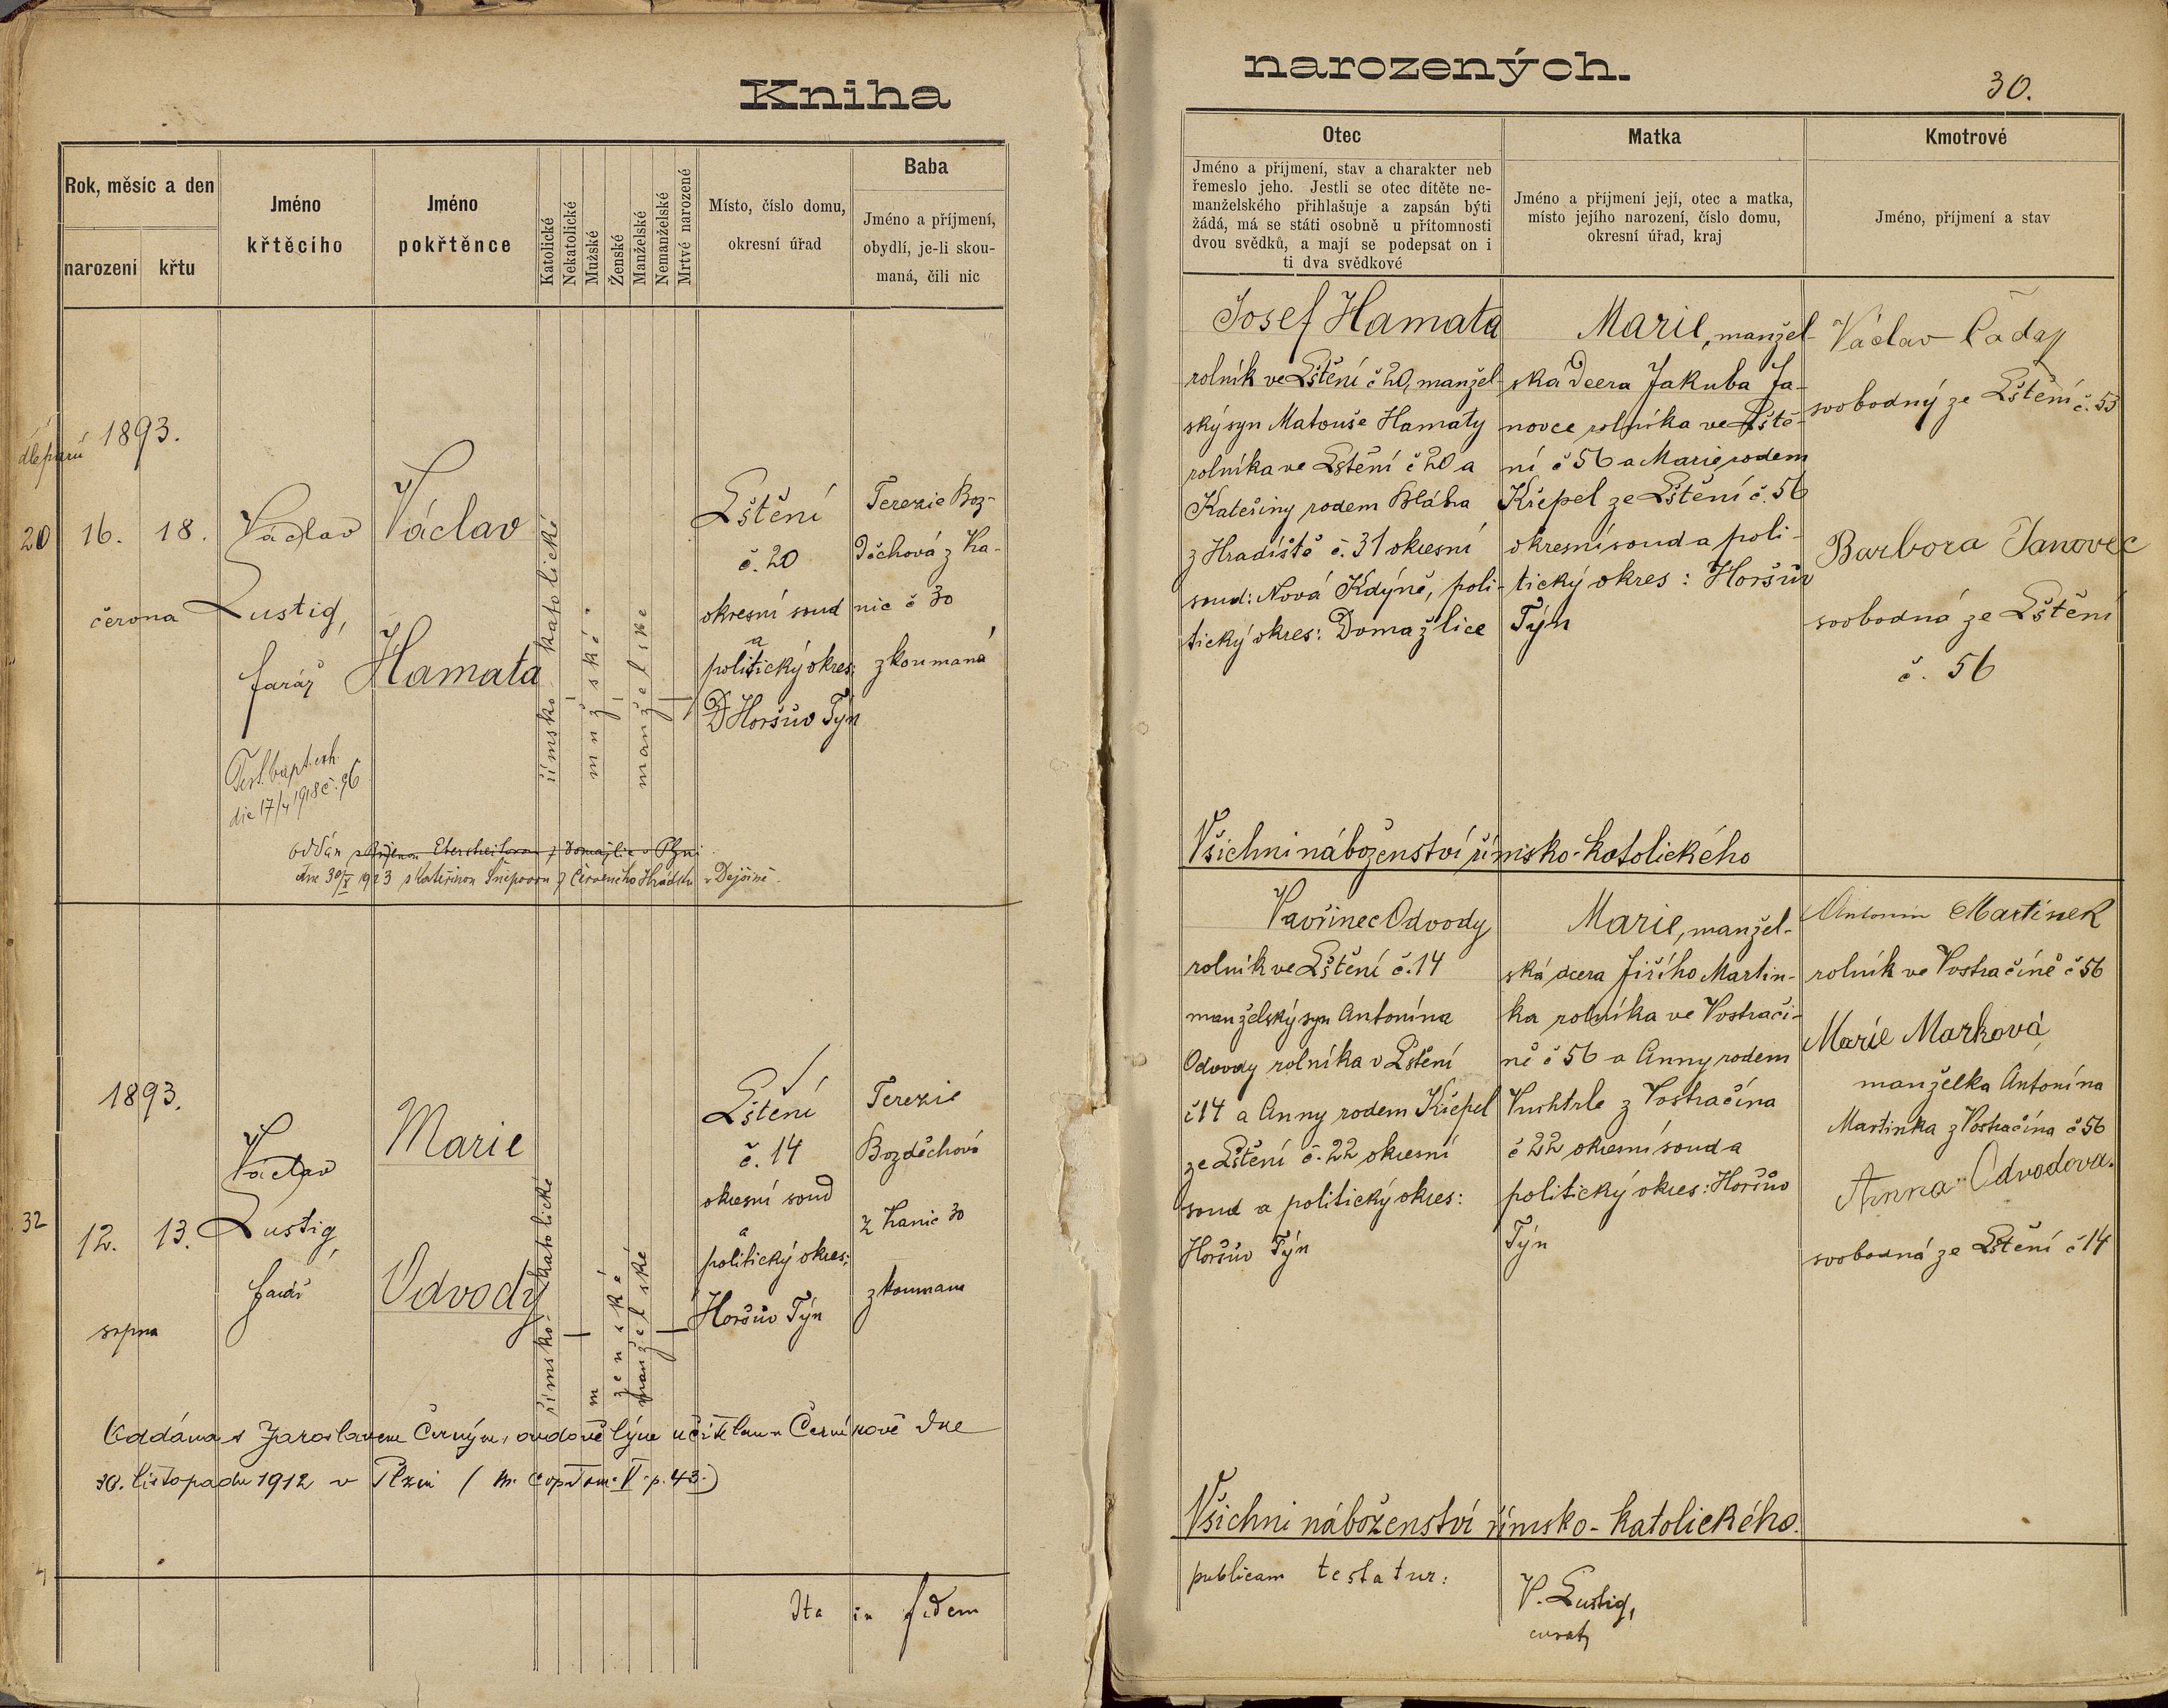 Kniha
narozených.
30.
Rok, měsíc a den
narození
křtu
Jméno
křtěcího
Jméno
pokřtěnce
Katolické
Nekatolické
Mužské
Ženské
Manželské
Nemanželské
Mrtvé narozené
Místo, číslo domu,
okresní úřad
Baba
Jméno a příjmení,
obydlí, je-li skou-
maná, čili nic
Otec
Jméno a příjmení, stav a charakter neb
řemeslo jeho. Jestli se otec dítěte ne-
manželského přihlašuje a zapsán býti
žádá, má se státi osobně u přítomnosti
dvou svědků, a mají se podepsat on i
ti dva svědkové
Matka
Jméno a příjmení její, otec a matka,
místo jejího narození, číslo domu,
okresní úřad, kraj
Kmotrové
Jméno, příjmení a stav
1893.
20
16.
18.
června
Václav
Lustig,
farář
Václav
Hamata
římsko katolické
mužské
manželské
Lštění
č. 20
okresní soud
a
politický okres:
Horšův Týn
Terezie Boz-
děchová z Ha-
nic č 30
zkoumaná
Test. bapt. exh.
die 17/4 1918 č. 96
oddán
dne 30/X 1923 s Kateřinou z Červeného Hrádku v Dejšině.
Josef Hamata
rolník ve Lštění č 20, manžel-
ský syn Matouše Hamaty
rolníka ve Lštění č 20 a
Kateřiny rodem Bláha
z Hradiště č. 31 okresní
soud: Nová Kdýně, poli-
tický okres: Domažlice
Marie, manžel-
ská dcera Jakuba Ja-
novce rolníka ve Lště-
ní č 56 a Marie rodem
Křepel ze Lštění č. 56
okresní soud a poli-
tický okres: Horšův
Týn
Václav Čaday
svobodný ze Lštění č. 53
Barbora Janovec
svobodná ze Lštění
č. 56
Všichni náboženství římsko-katolického
1893.
32
12.
13.
srpna
Václav
Lustig,
farář
Marie
Odvody
římsko-katolické
ženské
manželské
Lštění
č. 14
okresní soud
a
politický okres:
Horšův Týn
Terezie
Bozděchová
z Hanic 30
zkoumana
Oddána s Jaroslavem Černým, ovdovělým učitelem v Černíkově dne
30. listopadu 1912 v Plzni (m. cop. Tom. V. p. 43.)
Vavřinec Odvody
rolník ve Lštění č. 14
manželský syn Antonína
Odvody rolníka v Lštění
č 14 a Anny rodem Křepel
ze Lštění č. 22 okresní
soud a politický okres:
Horšův Týn
Marie, manžel-
ská dcera Jiřího Martin-
ka rolníka ve Vostrači-
ně č 56 a Anny rodem
z Vostračína
č 22 okresní soud a
politický okres: Horšův
Týn
Antonín Martínek
rolník ve Vostračíně č 56
Marie Marková
manželka Antonína
Martinka z Vostračína č 56
Anna Odvodova.
svobodná ze Lštění č 14
Všichni náboženství římsko-katolického.
Ita in fidem
publicam testatur:
V. Lustig,